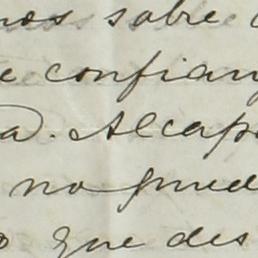 nos sobre
e confian
a. Alcap
no pued
que des